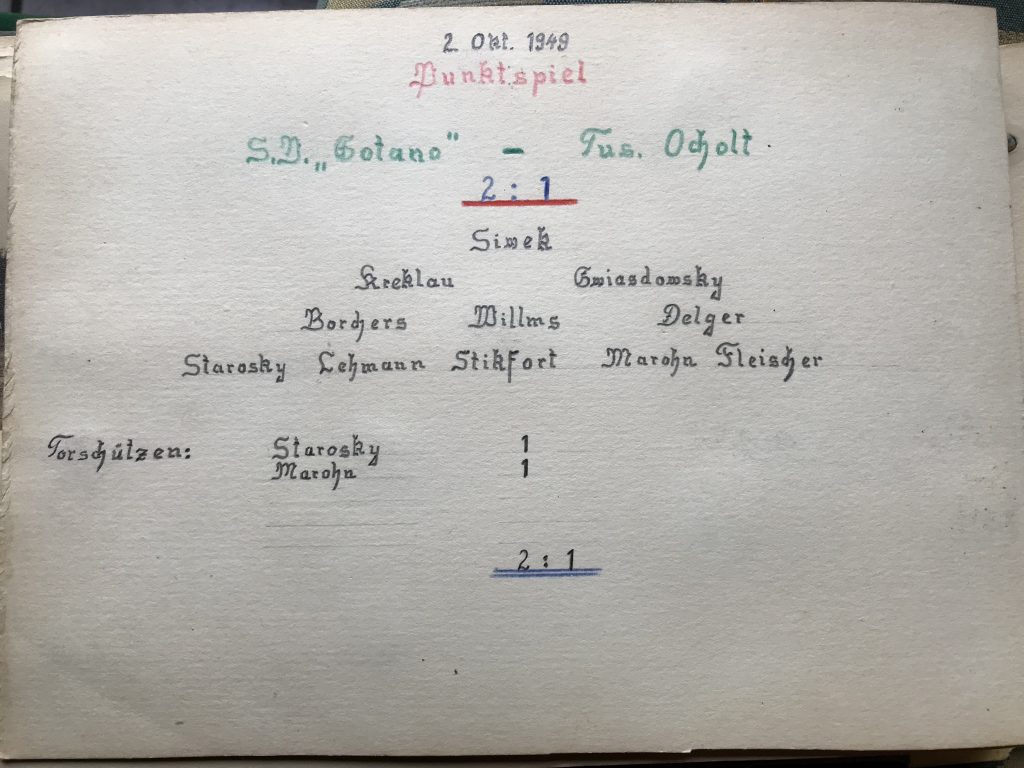 2. Okt. 1949
Punktspiel
S.V. „Gotano" - Tus. Ocholt
2 : 1
Simek
Kreklau Gwiasdowsky
Borchers Willms Delger
Starosky Lehmann Stikfort Marohn Fleischer
Torschützen: Starosky 1
Marohn 1
2 : 1